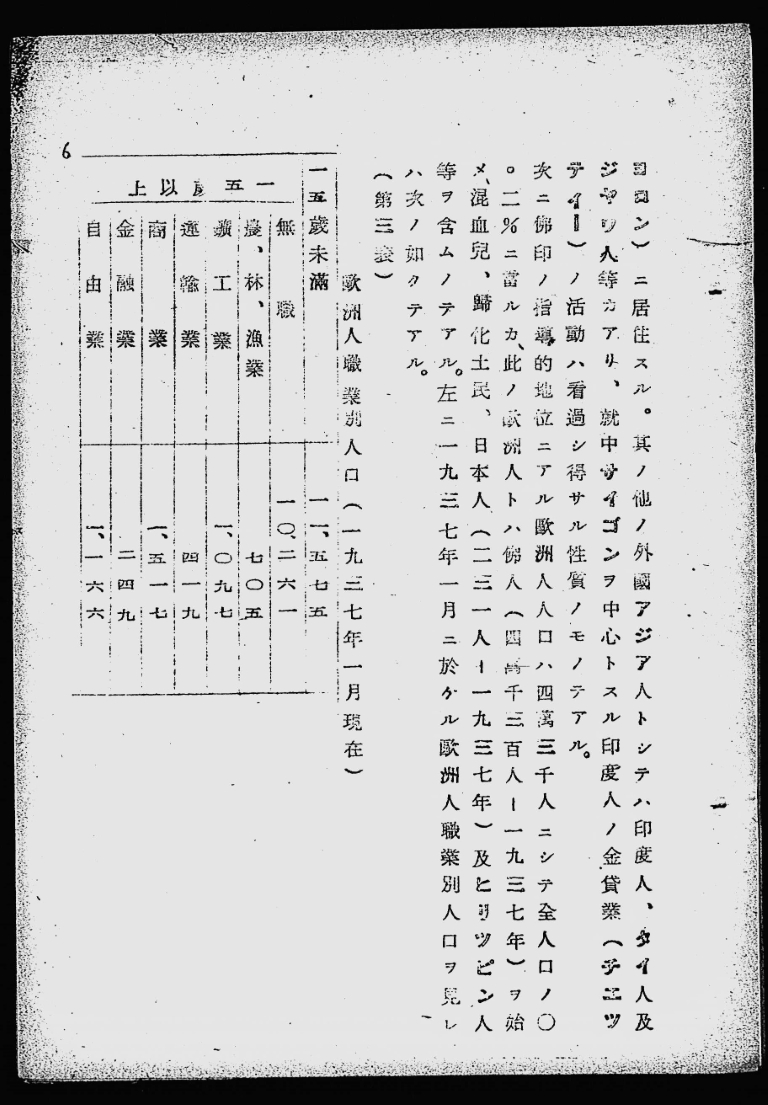 ココン）ニ居住スル。其ノ他ノ外國アジア人トシテハ印度人、タイ人及
ジヤワ人等カアリ、就中サイゴンヲ中心トスル印度人ノ金貸業（チエツ
テイー）ノ活動ハ看過シ得サル性質ノモノテアル。
次ニ佛印ノ指導的地位ニアル歐洲人人口ハ四萬三千人ニシテ全人口ノ〇
。二％ニ當ルカ、此ノ歐洲人トハ佛人（四萬千三百人ー一九三七年）ヲ始
メ、混血兒、歸化土民、日本人（二三一人ー一九三七年）及ヒリツピン人
等ヲ含ムノテアル。左ニ一九三七年一月ニ於ケル歐洲人職業別人口ヲ見レ
ハ次ノ如クテアル。
（第三表）
歐洲人職業別人口（一九三七年一月現在）
一五歲未滿 一一、五七五
一五歲以上
無職 一〇、二六一
農、林、漁業 七〇五
礦工業 一、〇九七
運輸業 四一九
商業 一、五一七
金融業 二四九
自由業 一、一六六
6